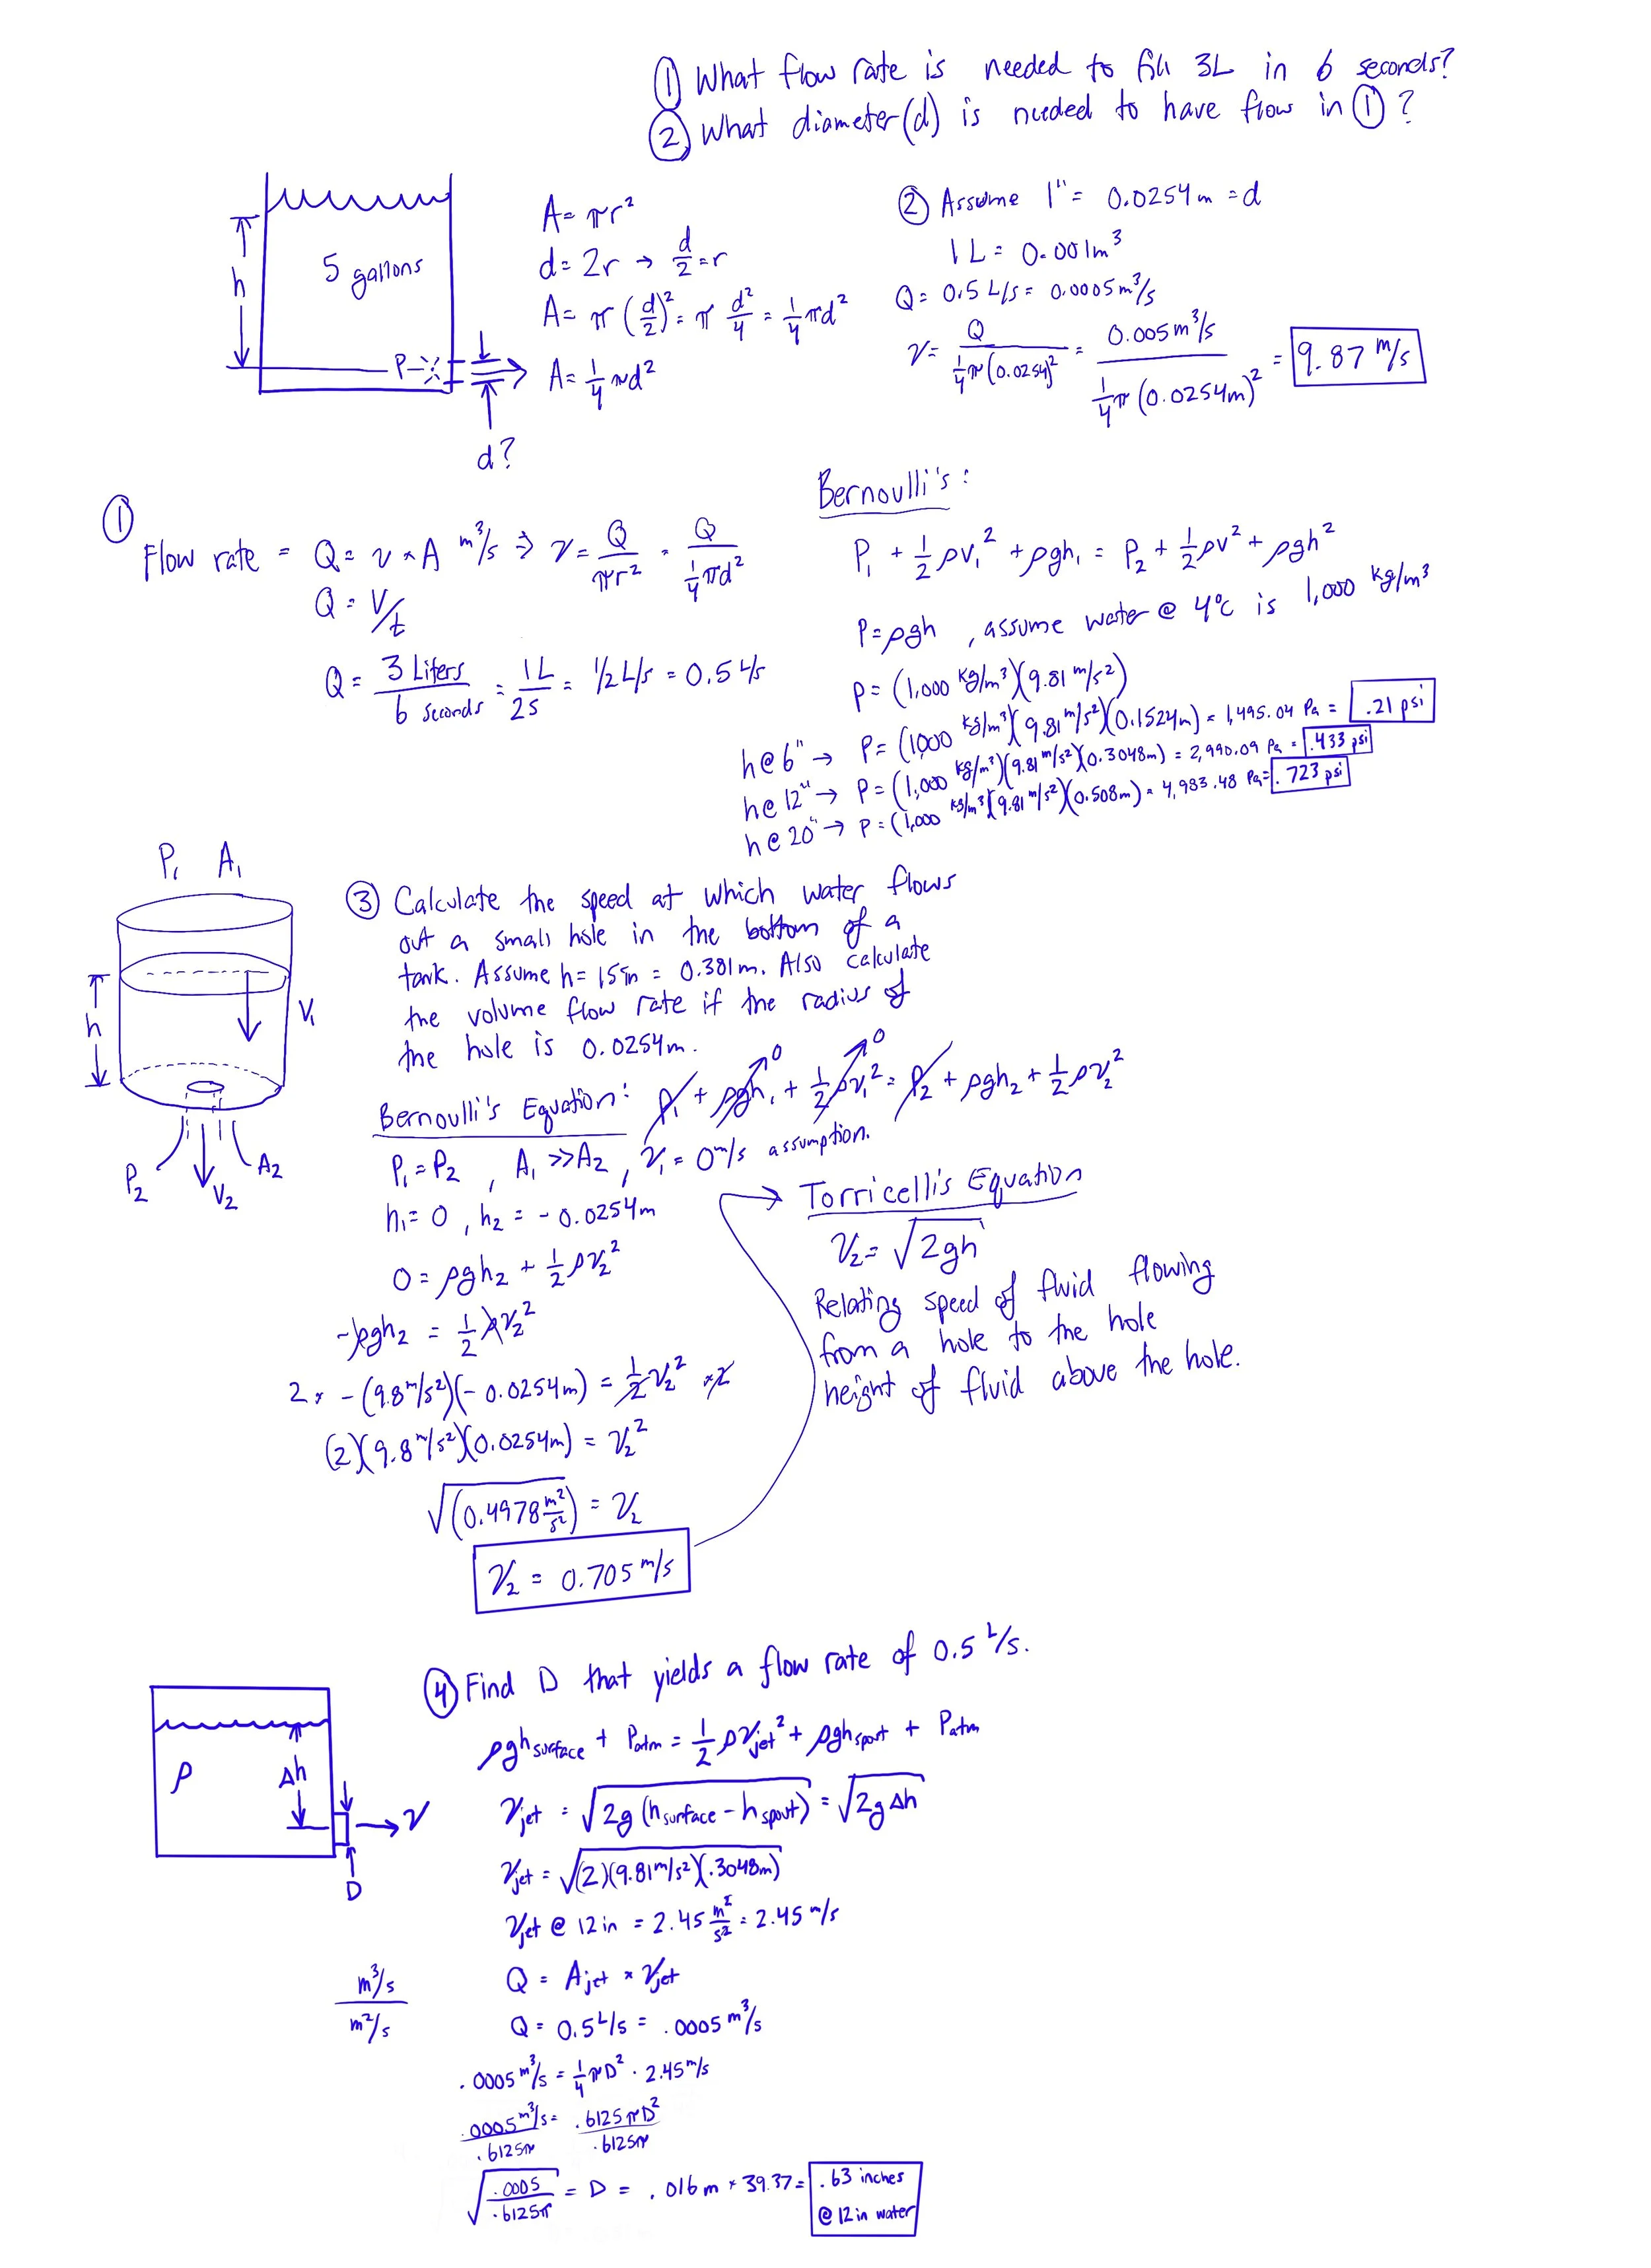 ① What flow rate is needed to fill 3L in 6 seconds?
② What diameter (d) is needed to have flow in ①?
h
5 gallons
P
d?
A = πr²
d = 2r → d/2 = r
A = π (d/2)² = π d²/4 = 1/4 πd²
A = 1/4 πd²
② Assume 1" = 0.0254m = d
1 L = 0.001m³
Q = 0.5 L/s = 0.0005 m³/s
v = Q / 1/4 π (0.0254)² = 0.005 m³/s / 1/4 π (0.0254m)² = 9.87 m/s
①
Flow rate = Q = v × A m³/s ⇒ v = Q/πr² = Q / 1/4 πd²
Q = V/t
Q = 3 Liters / 6 seconds = 1L/2s = 1/2 L/s = 0.5 L/s
Bernoulli's:
P₁ + 1/2 ρv₁² + ρgh₁ = P₂ + 1/2 ρv² + ρgh²
P = ρgh , assume water @ 4°C is 1,000 kg/m³
P = (1,000 kg/m³)(9.81 m/s²)
h@6" → P = (1000 kg/m³)(9.81 m/s²)(0.1524m) = 1,495.04 Pa = .21 psi
h@12" → P = (1,000 kg/m³)(9.81 m/s²)(0.3048m) = 2,990.09 Pa = .433 psi
h@20" → P = (1,000 kg/m³)(9.81 m/s²)(0.508m) = 4,983.48 Pa = .723 psi
P₁ A₁
h
V₁
P₂
V₂
A₂
③ Calculate the speed at which water flows
out a small hole in the bottom of a
tank. Assume h = 15in = 0.381m. Also calculate
the volume flow rate if the radius of
the hole is 0.0254m.
Bernoulli's Equation: P₁ + ρgh₁ 0 + 1/2 ρv₁² 0 = P₂ + ρgh₂ + 1/2 ρv₂²
P₁ = P₂ , A₁ >> A₂ , v₁ = 0 m/s assumption.
h₁ = 0 , h₂ = -0.0254m
0 = ρgh₂ + 1/2 ρv₂²
-ρgh₂ = 1/2 ρv₂²
2 × -(9.8 m/s²)(-0.0254m) = 1/2 v₂² × 2
(2)(9.8 m/s²)(0.0254m) = v₂²
√(0.4978 m²/s²) = v₂
v₂ = 0.705 m/s
Torricelli's Equation
v₂ = √2gh
Relating speed of fluid flowing
from a hole to the hole
height of fluid above the hole.
④ Find D that yields a flow rate of 0.5 L/s.
ρ
Δh
v
D
ρgh surface + Patm = 1/2 ρv jet² + ρgh spout + Patm
v jet = √2g (h surface - h spout) = √2gΔh
v jet = √(2)(9.81 m/s²)(.3048m)
v jet @ 12 in = 2.45 m²/s² = 2.45 m/s
Q = A jet × v jet
m³/s / m²/s
Q = 0.5 L/s = .0005 m³/s
.0005 m³/s = 1/4 πD² · 2.45 m/s
.0005 m³/s / .6125π = .6125πD² / .6125π
√.0005 / .6125π = D = .016 m × 39.37 = .63 inches
@ 12 in water